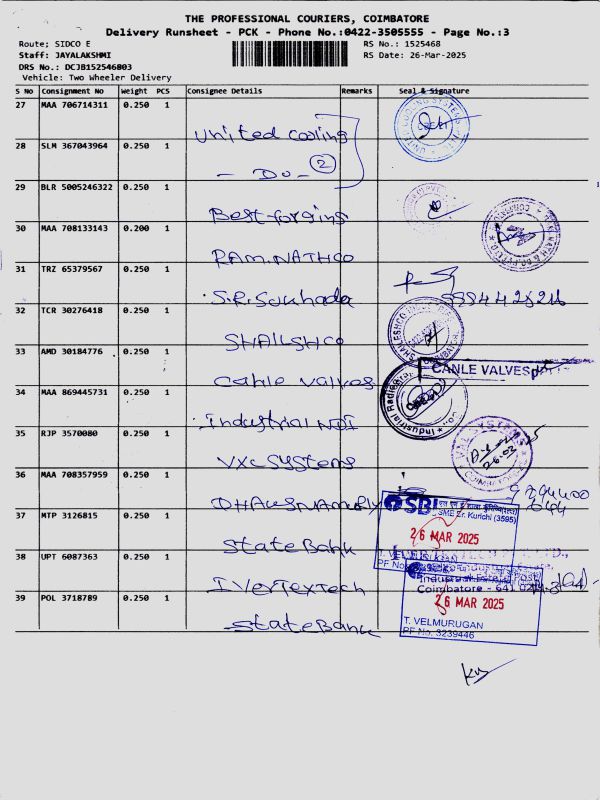 THE PROFESSIONAL COURIERS, COIMBATORE
Delivery Runsheet - PCK - Phone No.:0422-3505555 - Page No.:3
Route; SIDCO E RS No.: 1525468
Staff: JAYALAKSHMI RS Date: 26-Mar-2025
DRS No.: DCJB152546803
Vehicle: Two Wheeler Delivery
S No Consignment No Weight PCS Consignee Details Remarks Seal & Signature
27 MAA 706714311 0.250 1
United Cooling
28 SLM 367043964 0.250 1
- Do - 2
29 BLR 5005246322 0.250 1
Best-forgins
30 MAA 708133143 0.200 1
RAM.NATHCO
31 TRZ 65379567 0.250 1
S.R.Sukhada
32 TCR 30276418 0.250 1
SHAILSHCO
33 AMD 30184776 0.250 1
CANLE VALVES
Canle Valves
34 MAA 869445731 0.250 1
Industrial NDI
35 RJP 3570080 0.250 1
VXL SYSTEMS
36 MAA 708357959 0.250 1
37 MTP 3126815 0.250 1
SBI
SME Br. Kurichi (3595)
26 MAR 2025
State Bank
38 UPT 6087363 0.250 1
IVertexTech
39 POL 3718789 0.250 1
Coimbatore - 641
26 MAR 2025
State Bank
T. VELMURUGAN
PF No. 3239446